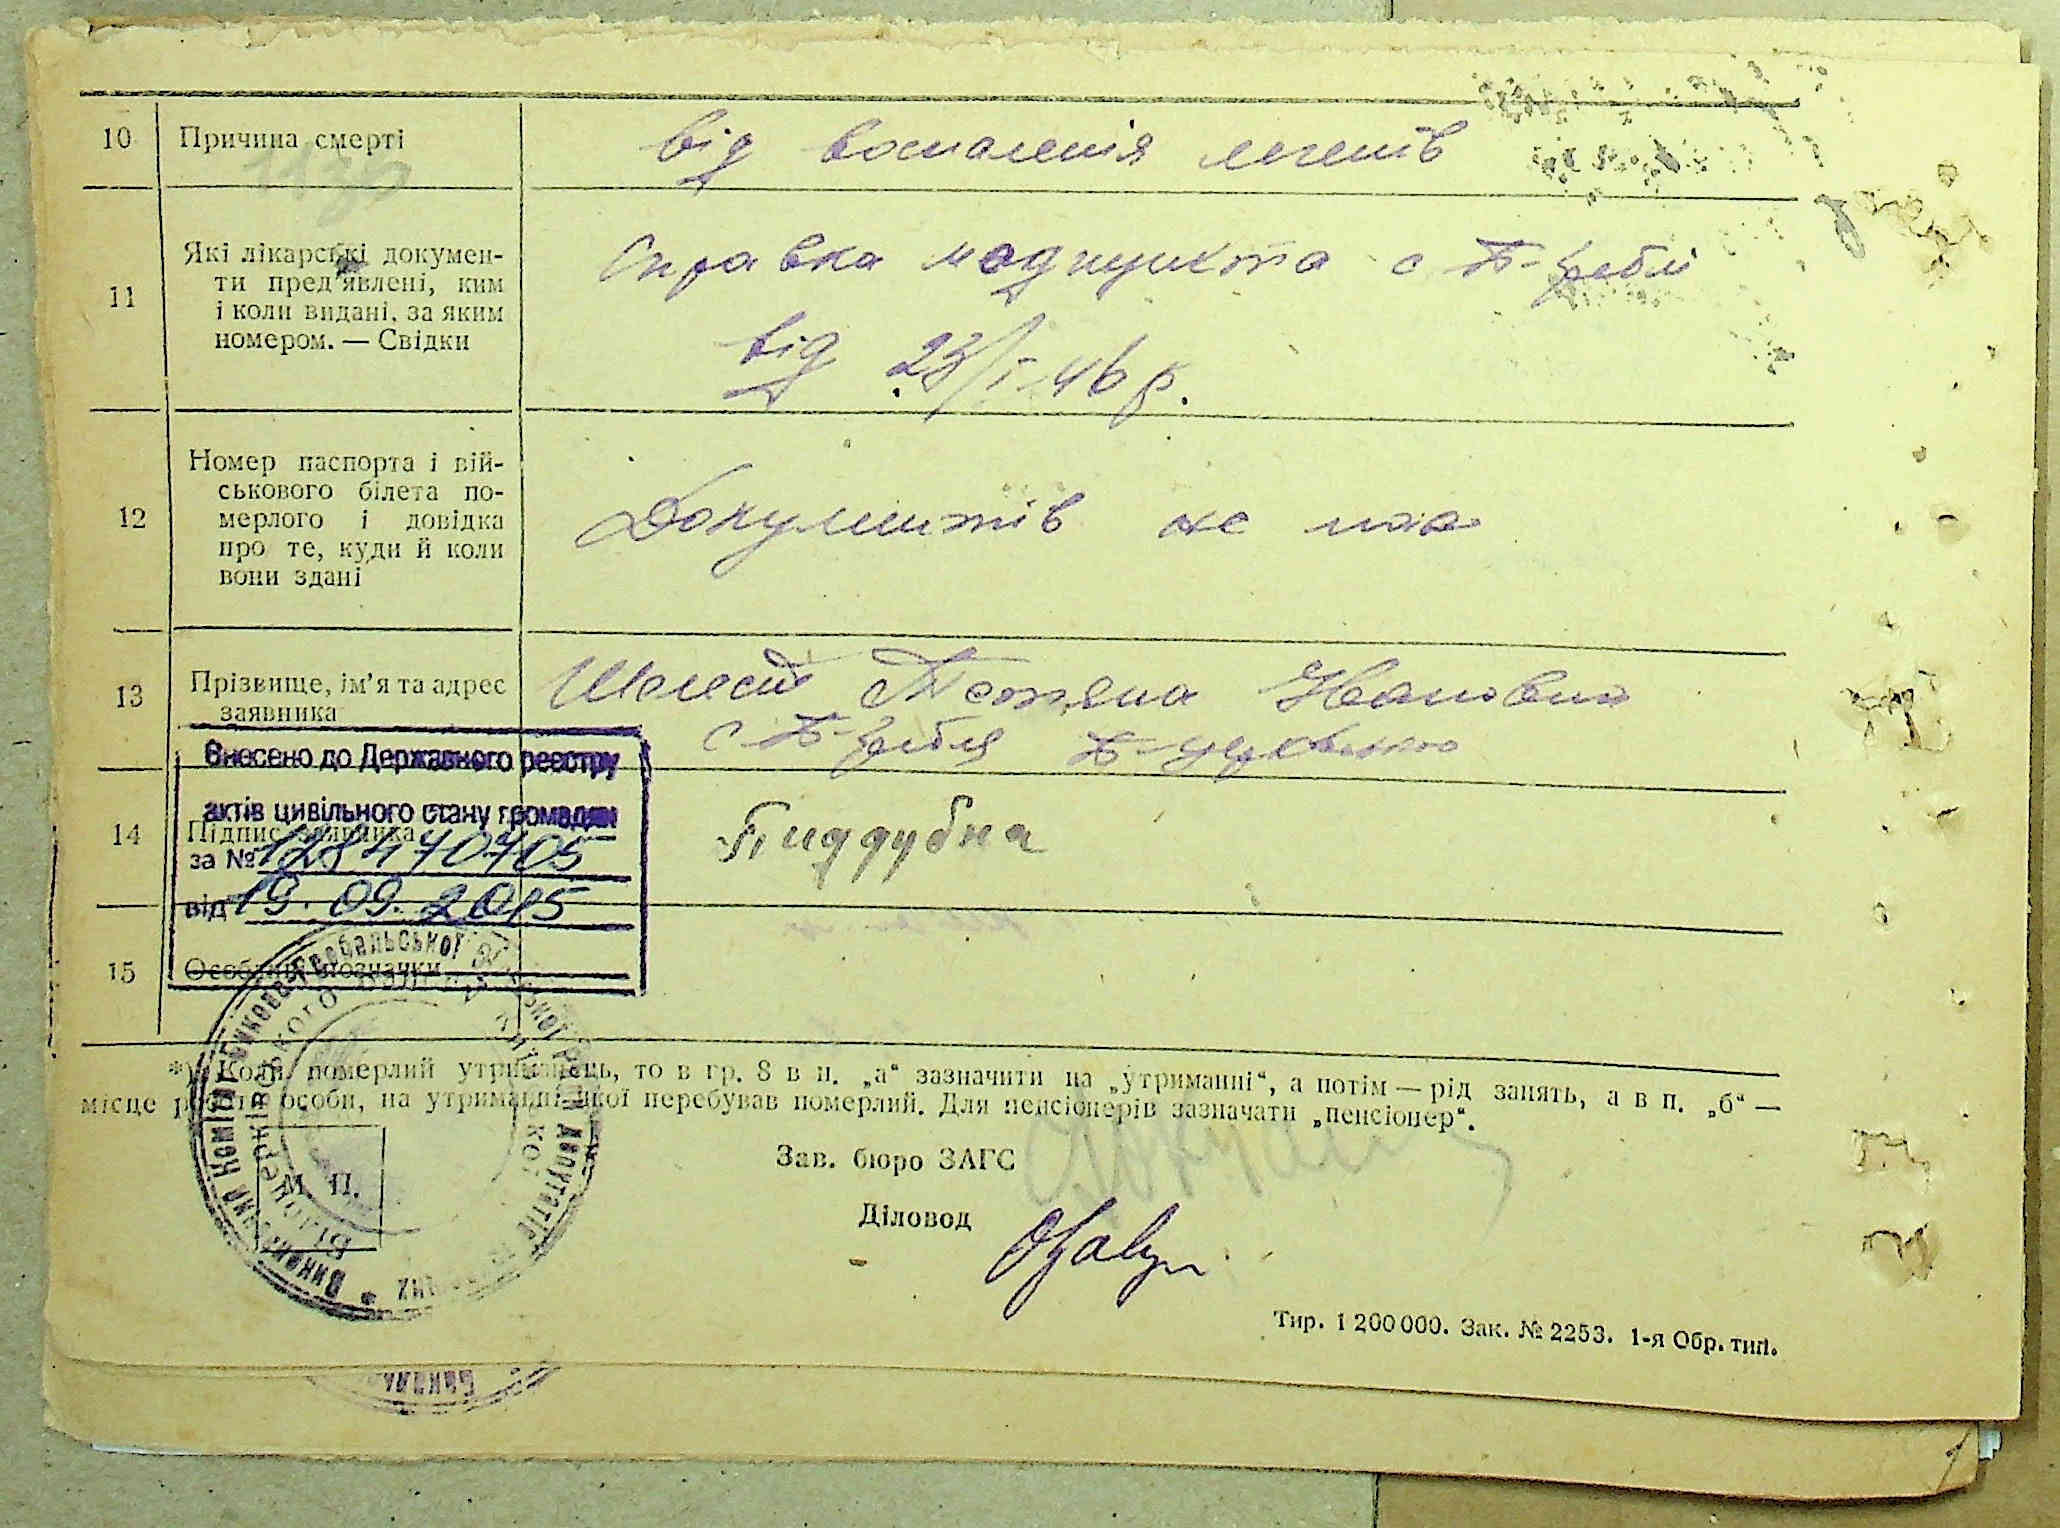 10 Причина смерті від воспаленія легенів
11 Які лікарські докумен-
ти пред'явлені, ким
і коли видані, за яким
номером. — Свідки
Справка медпункта с Б-Гребля
від 23/I-46 р.
12 Номер паспорта і вій-
ськового білета по-
мерлого і довідка
про те, куди й коли
вони здані
Документів не має
13 Прізвище, ім'я та адрес
заявника
Шелест Тетяна Івановна
с Б-Гребля Б-церковского
Внесено до Державного реєстру
актів цивільного стану громадян
за № 128470705
від 19.09.2015
14 Підпис заявника Пиддубна
15 Особливі позначки
*) Коли померлий утриманець, то в гр. 8 в п. „а“ зазначити на „утриманні“, а потім — рід занять, а в п. „б“ —
місце роботи особи, на утриманні якої перебував померлий. Для пенсіонерів зазначати „пенсіонер“.
М. П.
Зав. бюро ЗАГС
Діловод
Тир. 1 200 000. Зак. № 2253. 1-я Обр. тип.